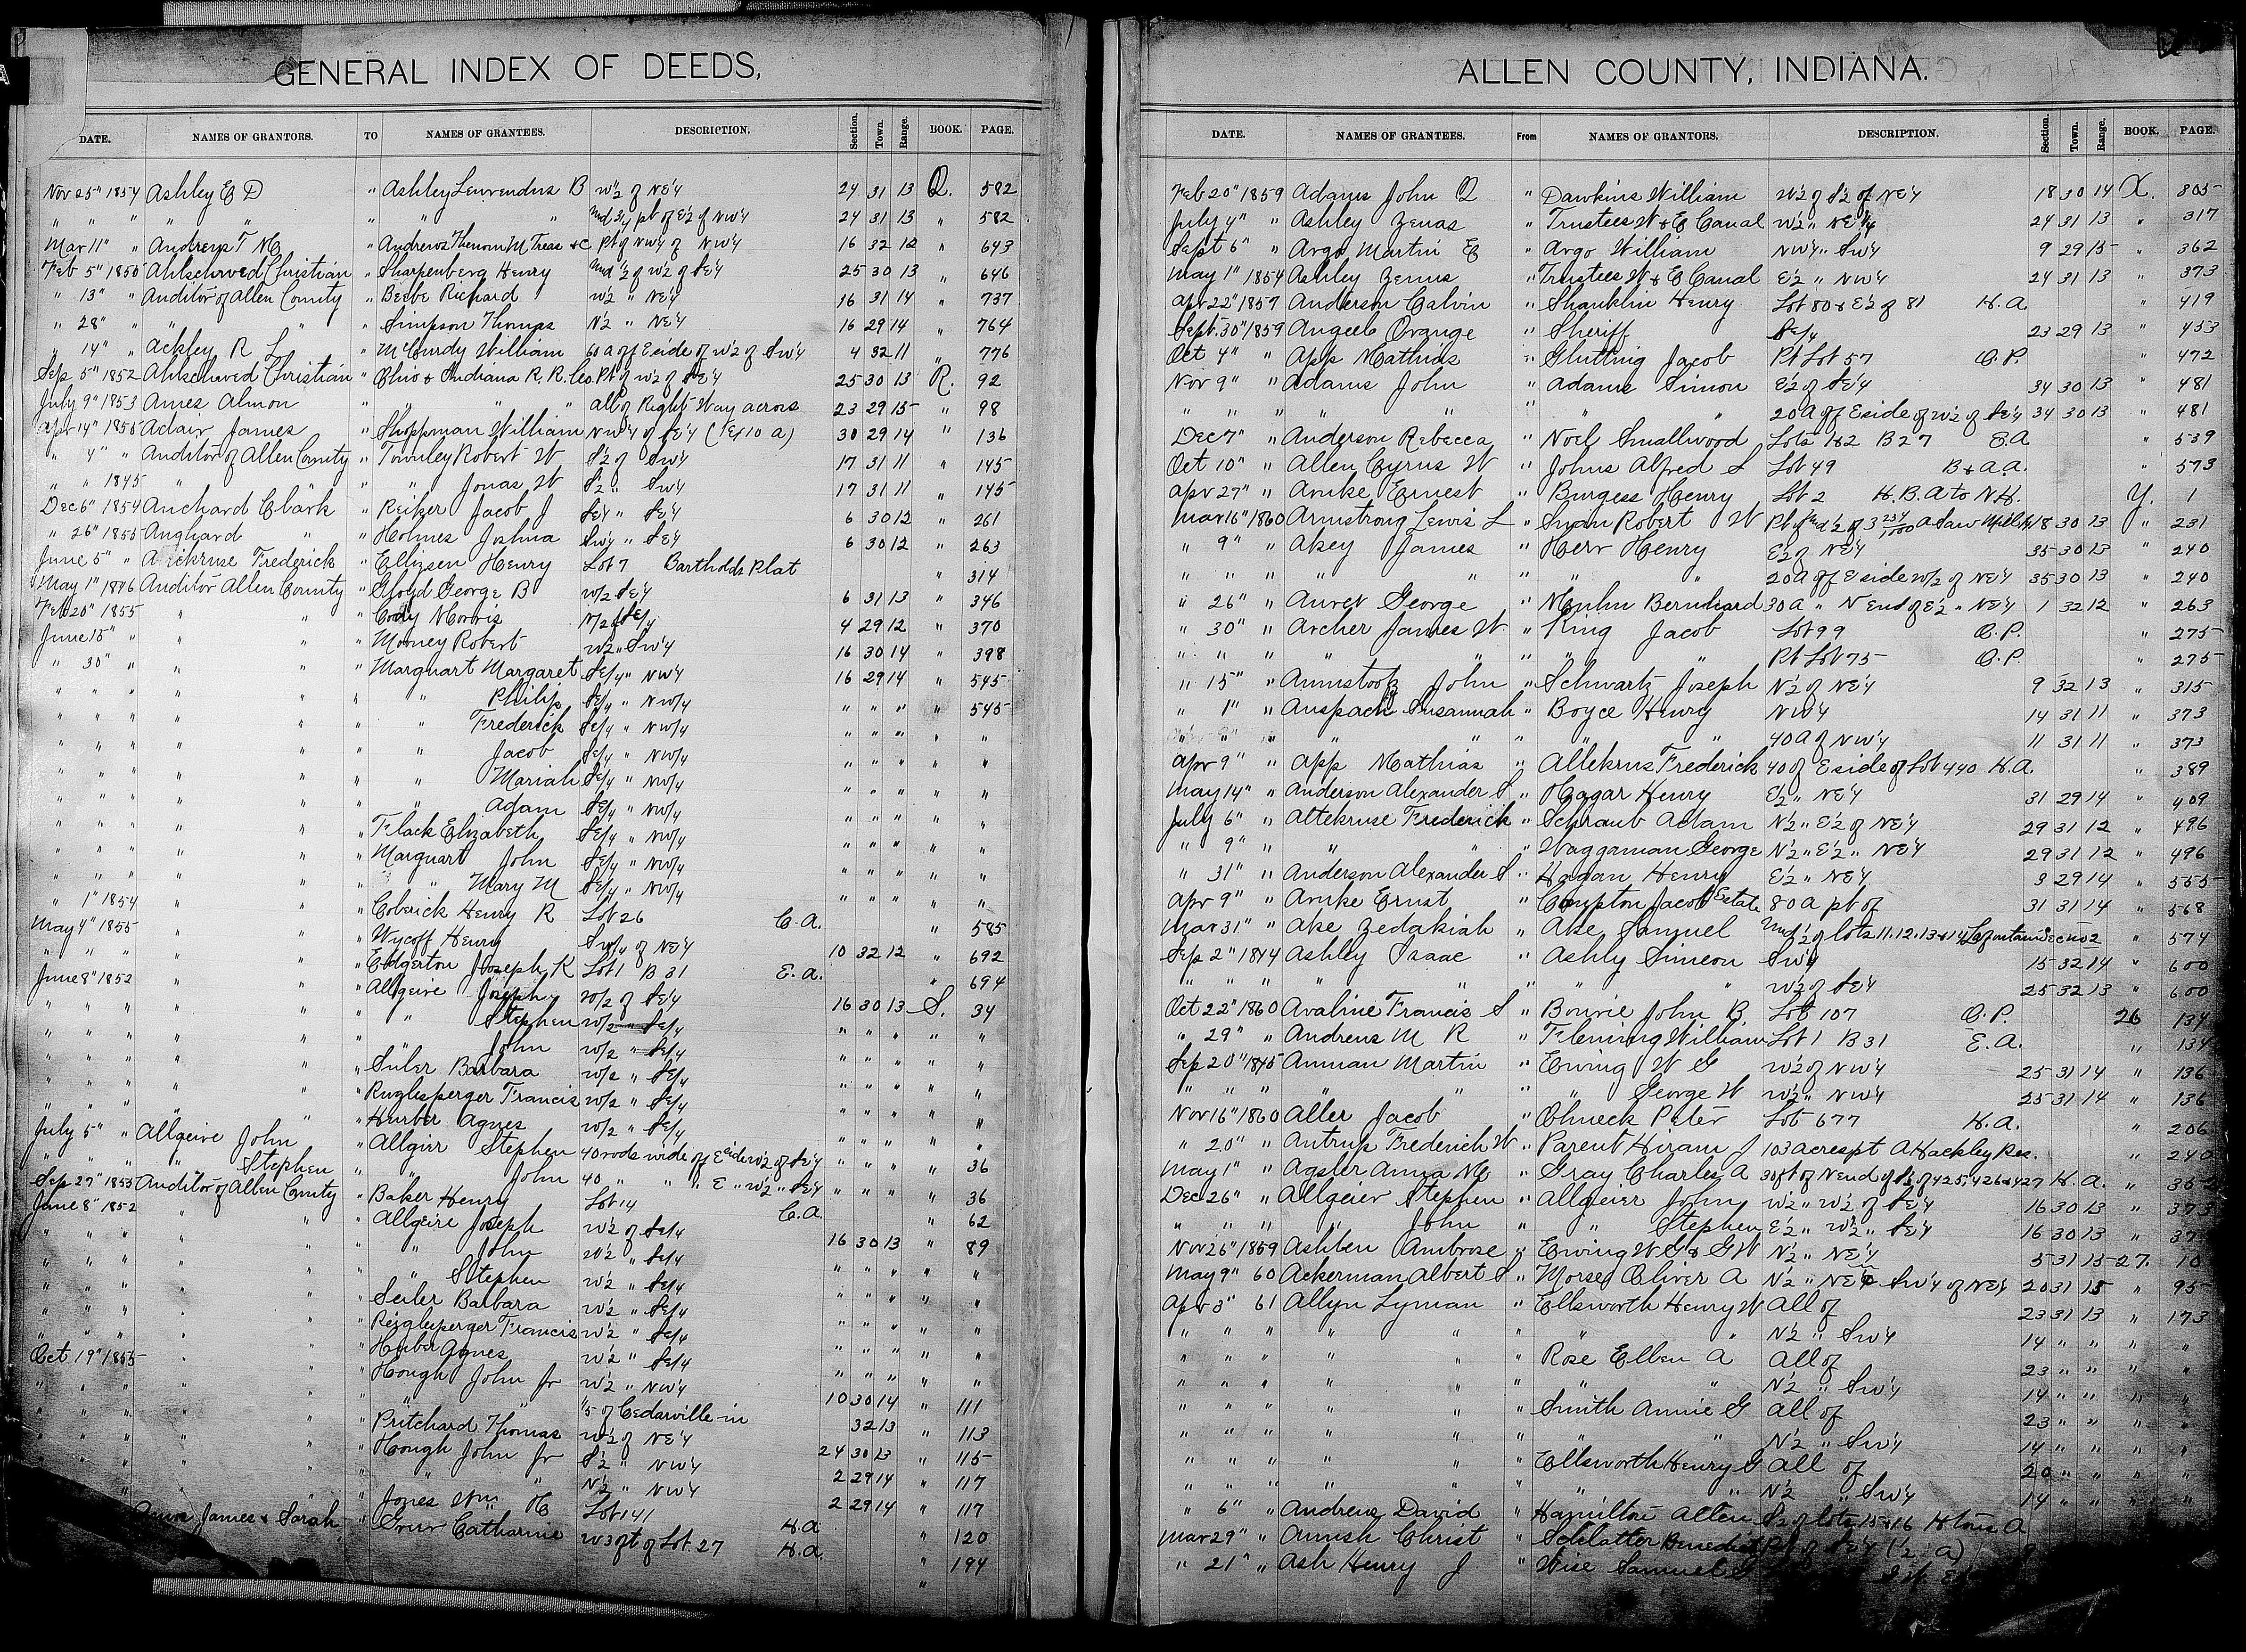 GENERAL INDEX OF DEEDS,
DATE. NAMES OF GRANTORS. TO NAMES OF GRANTEES. DESCRIPTION. Section. Town. Range. BOOK. PAGE.
Nov 25" 1854 Ashley E D " Ashley Lewrendus B W½ of NE¼ 24 31 13 Q. 582
" " " " " " " " Und 3/4 pt of E½ of NW¼ 24 31 13 " 582
Mar 11" " Andrews T M " Andrews Therom M Treas &C Pt of NW¼ of NW¼ 16 32 12 " 643
Feb 5" 1855 Ahlschwed Christian " Sharpenberg Henry Und ½ of W½ of SE¼ 25 30 13 " 646
" 13" " Auditor of Allen County " Beebe Richard W½ " NE¼ 16 31 14 " 737
" 28" " " " " Simpson Thomas N½ " NE¼ 16 29 14 " 764
" 14" " Ackley R L " McCurdy William 60 a off E side of W½ of SW¼ 4 32 11 " 776
Sep 5" 1852 Ahlschwed Christian " Ohio & Indiana R.R. Co. Pt of W½ of SE¼ 25 30 13 R. 92
July 9" 1853 Ames Almon " " " " all of Right Way across 23 29 15 " 98
Apr 14" 1855 Adair James " Shoppman William NW¼ of SE¼ (Ex 10 a) 30 29 14 " 136
" 4" " Auditor of Allen County " Townley Robert W S½ of SW¼ 17 31 11 " 145
" " 1845 " " " Jonas W S½ " SW¼ 17 31 11 " 145
Dec 6" 1854 Auchard Clark " Reiker Jacob J SE¼ " SE¼ 6 30 12 " 261
" 26" 1855 Anghard " " Holmes Joshua SW¼ " SE¼ 6 30 12 " 263
June 5" " Frederick " Ellisen Henry Lot 7 Bartholds Plat " 314
May 1" 1846 Auditor Allen County " Gloyd George B W/2 SE¼ 6 31 13 " 346
Feb 20" 1855 " " " Cody Morris SE/4 4 29 12 " 370
June 15" " " " " Mooney Robert W½ " SW¼ 16 30 14 " 398
" 30" " " " " Marquart Margaret SE/4 " NW¼ 16 29 14 " 545
" " " " " " " Philip SE/4 " NW/4 " " " " 545
" " " " " " " Frederick SE/4 " NW/4 " " " " "
" " " " " " " Jacob SE/4 " NW/4 " " " " "
" " " " " " " Mariah SE/4 " NW/4 " " " " "
" " " " " " " Adam SE/4 " NW/4 " " " " "
" " " " " " Flack Elizabeth SE/4 " NW/4 " " " " "
" " " " " " Marquart John SE/4 " NW/4 " " " " "
" " " " " " " Mary M SE/4 " NW/4 " " " " "
" 1" 1854 " " " Coberick Henry R Lot 26 C.A. " 585
May 4" 1855 " " " Wycoff Henry SW/4 of NE¼ 10 32 12 " 692
" " " " " " Edgerton Joseph K Lot 1 B 31 E.A. " 694
June 8" 1852 " " " Allgeire Joseph W/2 of SE¼ 16 30 13 S. 34
" " " " " " " Stephen W/2 " SE/4 " " " " "
" " " " " " " John W/2 " SE/4 " " " " "
" " " " " " Siiler Barbara W/2 " SE/4 " " " " "
" " " " " " Ruglesperger Francis W/2 " SE/4 " " " " "
" " " " " " Hurber Agnes W/2 " SE/4 " " " " "
July 5" " Allgeire John " Allgier Stephen 40 rods wide off E side W½ of SE¼ " " " " 36
" " " " Stephen " " John 40 " " " E " W½ " SE¼ " " " " 36
Sep 27" 1855 Auditor of Allen County " Baker Henry Lot 14 C.A. " 62
June 8" 1852 " " " Allgeire Joseph W½ of SE/4 16 30 13 " 89
" " " " " " " John W½ " SE/4 " " " " "
" " " " " " " Stephen W½ " SE/4 " " " " "
" " " " " " Seiler Barbara W½ " SE/4 " " " " "
" " " " " " Reiglesperger Francis W½ " SE/4 " " " " "
" " " " " " Huber Agnes W½ " SE/4 " " " " "
Oct 19" 1855 " " " Hough John Jr W½ " NW¼ 10 30 14 " 111
" " " " " " " "5 of Cedarville in 32 13 " 113
" " " " " " Pritchard Thomas W½ of NE¼ 24 30 13 " 115
" " " " " " Hough John Jr S½ " NW¼ 2 29 14 " 117
" " " " N½ " NW¼ 2 29 14 " 117
" Jones Wm H Lot 141 H.A. " 120
James & Sarah " Catharine W 30ft of Lot 27 H.A. " 194
ALLEN COUNTY, INDIANA.
DATE. NAMES OF GRANTEES. From NAMES OF GRANTORS. DESCRIPTION. Section. Town. Range. BOOK. PAGE.
Feb 20" 1859 Adams John Q " Dawkins William W½ of S½ of NE¼ 18 30 14 X. 305
July 4" " Ashley Zenas " Trustees W & E Canal W½ " NE¼ 24 31 13 " 317
Sept 6" " Argo Martin E " Argo William NW¼ " SW¼ 9 29 15 " 362
May 1" 1854 Ashley Zenus " Trustees W & E Canal E½ " NW¼ 24 31 13 " 373
Apr 22" 1857 Anderson Calvin " Shanklin Henry Lot 80 & E½ of 81 H.A. " 419
Sept. 30" 1859 Angeeb Orange " Sheriff SE/4 23 29 13 " 453
Oct 4" " App Mathias " Glutting Jacob Pt Lot 57 O.P. " 472
Nov 9" " Adams John " Adams Simon E½ of SE¼ 34 30 13 " 481
" " " " " " " " 20A off E side of W½ of SE¼ 34 30 13 " 481
Dec 7" " Anderson Rebecca " Noel Smallwood Lots 1&2 B 27 E.A. " 539
Oct 10" " Allen Cyrus W " Johns Alfred S Lot 49 B & A A. " 573
Apr 27" " Arnke Ernest " Burgess Henry Lot 2 H.B.A to N.H. Y. 1
Mar 16" 1860 Armstrong Lewis L " Swan Robert W Pt of Und ½ of 3 234/1000 A Saw Mill 18 30 13 " 231
" 9" " Akey James " Herr Henry E½ of NE¼ 35 30 13 " 240
" " " " " " " " 20A off E side W/2 of NE¼ 35 30 13 " 240
" 26" " Aurer George " Bernhard 30 A " N end of E½ " NE¼ 1 32 12 " 263
" 30" " Archer James W " King Jacob Lot 99 O.P. " 275
" " " " " " " " Pt Lot 75 O.P. " 275
" 15" " Armstootz John " Schwartz Joseph N½ of NE¼ 9 32 13 " 315
" 1" " Anspach Susannah " Boyce Henry NW¼ 14 31 11 " 373
" " " " " " " 40A of NW¼ 11 31 11 " 373
Apr 9" " App Mathias " Altekrus Frederick 40 of E side of Lot 440 H.A. " 389
May 14" " Anderson Alexander S " Hagar Henry E½ " NE¼ 31 29 14 " 409
July 6" " Altekruse Frederick " Schraub Adam N½ " E½ of NE¼ 29 31 12 " 496
" 9" " " " " Waggaman George N½ " E½ " NE¼ 29 31 12 " 496
" 31" " Anderson Alexander S " Hagan Henry E½ " NE¼ 3 29 14 " 555
Apr 9" " Arnke Ernst " Compton Jacob Estate 80 A pt of 31 31 14 " 568
Mar 31" " Ake Zedakiah " Ake Samuel Und ½ of lots 11.12.13 & 14 Lafontain Sec No 2 " 574
Sep 2" 1844 Ashley Isaac " Ashly Simeon SW¼ 15 32 14 " 600
" " " " " " " " W½ of SE¼ 25 32 13 " 600
Oct 22" 1860 Avaline Francis S " Bowie John B Lot 107 O.P. 26 134
" 29" " Andrews M R " Fleming William Lot 1 B 31 E.A. " 134
Sep 20" 1845 Amman Martin " Ewing W G W½ of NW¼ 25 31 14 " 136
" " " " " " " George W W½ " NW¼ 25 31 14 " 136
Nov 16" 1860 Aller Jacob " Ohneck Peter Lot 677 H.A. " 206
" 20" " Antrup Frederich W " Parent Hiram J 103 acres pt A Hackley Res. " 240
May 1" " Agster Anna M " Gray Charles A 30ft of N end of S½ of 425, 426 & 427 H.A. " 352
Dec 26" " Allgeier Stephen " Allgeier John W½ " W½ of SE¼ 16 30 13 " 373
" " " " John " " Stephen E½ " W½ " SE¼ 16 30 13 "
Nov 26" 1859 Ashben Ambrose " Ewing W G & G W N½ " NE¼ 5 31 15 27. 10
May 9" 60 Ackerman Albert S " Morse Oliver A N½ " NE¼ & SW¼ of NE¼ 20 31 15 " 95
Apr 3" 61 Allyn Lyman " Ellsworth Henry W All of 23 31 13 " 173
" " " " " " " " N½ " SW¼ 14 " " " "
" " " " " " Rose Ellen A All of 23 " " " "
" " " " " " " " N½ " SW¼ 14 " " " "
" " " " " " Smith Annie G All of 23 " " " "
" " " " " " " " N½ " SW¼ 14 " " " "
" " " " " " Ellsworth Henry G All of 20 " " " "
" " " " " " " " N½ " SW¼ 14 " " " "
" 6" " Andrews David " Hamilton Allen S½ of lots 15 & 16
Mar 29" " Amish Christ " Schlatter Benedict Pt of SE¼ (½ a)
" 21" " Ash Henry J " Wise Samuel